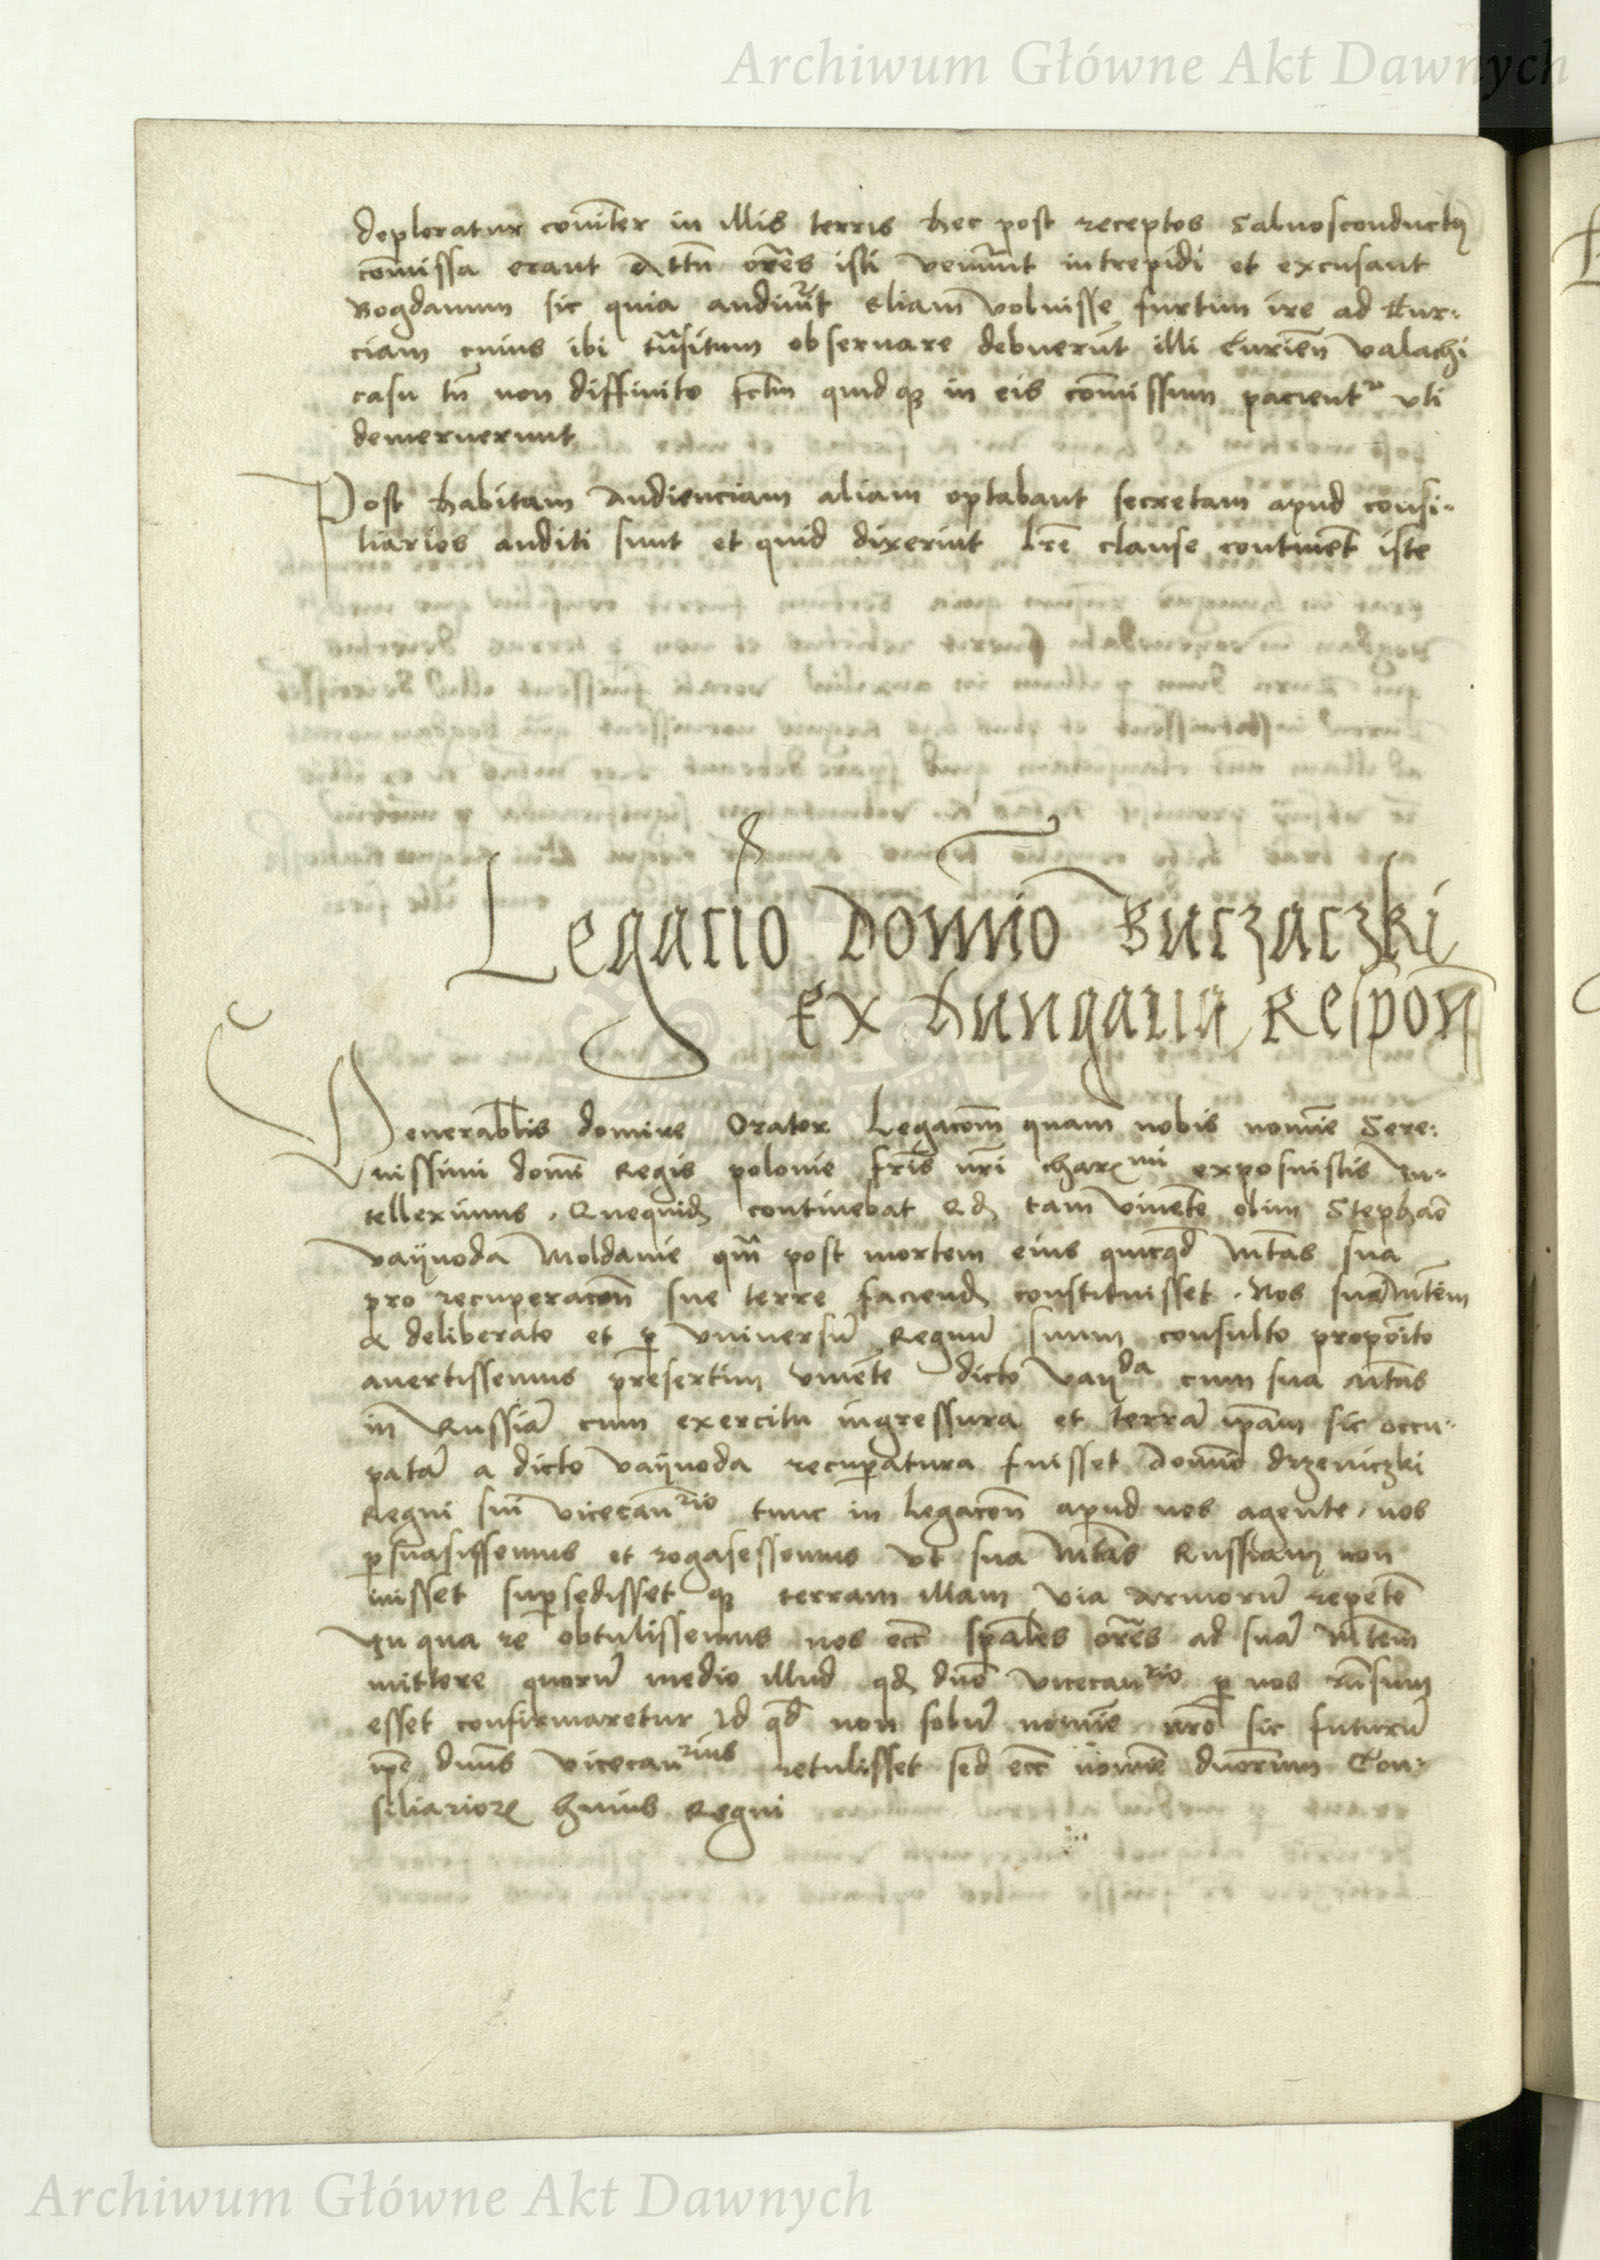 Archiwum Główne Akt Dawnych
deploratur co͞miter in illis terris hec post receptos Salvosconductꝯ
co͞missa erant Att͞n or͞es isti veni͞unt intrepidi et excusant
Bogdanum sic quia andiu͞nt Eliam voluisse furtim ire ad Tur-
ciam cuius ibi t͞nsitum observare debuer͞nt illi Valachi
casu t͞n non diffinito quidqꝫ in eis co͞missum pacient͞r uti
demeruerunt
Post habitam Audienciam aliam optabant secretam apud consi-
liarios auditi sunt et quid dixerint l͞re clause contine͞t iste
Legacio Domi͞o Buczaczki
Ex Hungaria Respon͞
Venerab͞lis domine Orator Legaco͞m quam nobis nomi͞e Sere-
nissimi domi͞ Regis polonie fr͞is n͞ri charꝫmi exposuistis In-
tellexinus. Quequidꝫ continebat Qdꝫ tam vive͞te olim Stepha͞o
vayvoda Moldavie qu͞m post mortem eius quicq͞d M͞tas sua
pro recuperaco͞n sue terre faciendꝫ constituisset. Nos sua͞m M͞tem
a deliberato et ꝑ universu͞ Regnu͞ suum consulto propo͞ito
avertissemus p͞resertim vive͞te dicto vayda cum sua M͞tas
in Russia͞ cum exercitu ingressura et terra͞ ip͞am sic occu-
pata͞ a dicto vayvoda recuꝑatura fuisset domi͞o drzeviczki
Regni sui vicecan͞rio tunc in legaco͞n apud nos agente, nos
ꝑsuasissemus et rogasessemus ut sua M͞tas Russiam non
iuisset suꝑsedisset qꝫ terram illam via armoru͞ repete͞
In qua re obtulissemus nos ec͞c sp͞ales or͞es ad sua͞ M͞tem
mittere quoru͞ medio illud qdꝫ d͞no vicecan͞rio ꝑ nos r͞nsum
esset confirmaretur Id q͞d non solu͞ nomi͞e n͞ro sic futuru͞
ip͞e d͞nus vicecan͞rius retulisset sed ec͞c nomi͞e d͞norum Con-
siliariorꝫ huius Regni
Archiwum Główne Akt Dawnych